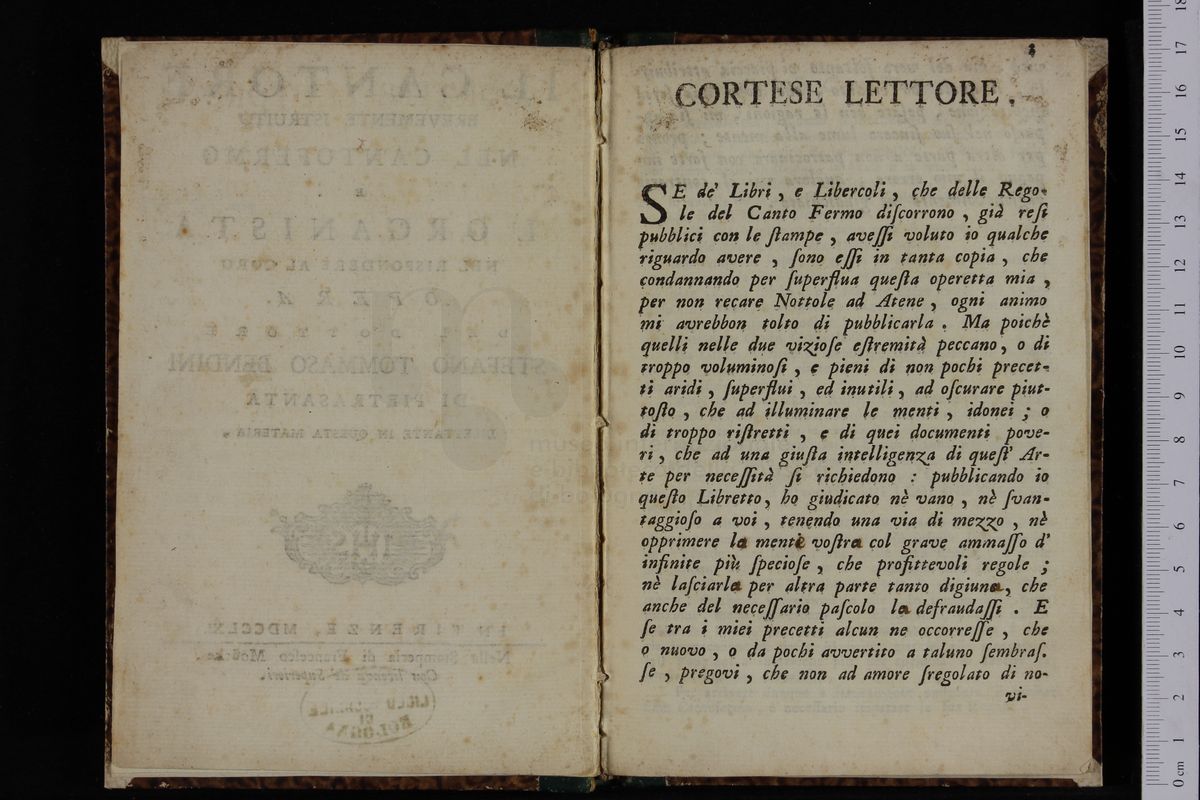 3
CORTESE LETTORE.
SE de' Libri, e Libercoli, che delle Rego-
le del Canto Fermo diſcorrono, già reſi
pubblici con le ſtampe, aveſſi voluto io qualche
riguardo avere, ſono eſſi in tanta copia, che
condannando per ſuperflua queſta operetta mia,
per non recare Nottole ad Atene, ogni animo
mi avrebbon tolto di pubblicarla. Ma poichè
quelli nelle due vizioſe eſtremità peccano, o di
troppo voluminoſi, e pieni di non pochi precet-
ti aridi, ſuperflui, ed inutili, ad oſcurare piut-
toſto, che ad illuminare le menti, idonei; o
di troppo riſtretti, e di quei documenti pove-
ri, che ad una giuſta intelligenza di queſt' Ar-
te per neceſſità ſi richiedono: pubblicando io
queſto Libretto, ho giudicato nè vano, nè ſvan-
taggioſo a voi, tenendo una via di mezzo, nè
opprimere la mente voſtra col grave ammaſſo d'
infinite più ſpecioſe, che profittevoli regole;
nè laſciarla per altra parte tanto digiuna, che
anche del neceſſario paſcolo la defraudaſſi. E
ſe tra i miei precetti alcun ne occorreſſe, che
o nuovo, o da pochi avvertito a taluno ſembraſ.
ſe, pregovi, che non ad amore ſregolato di no-
vi-
0 cm 1 2 3 4 5 6 7 8 9 10 11 12 13 14 15 16 17 18